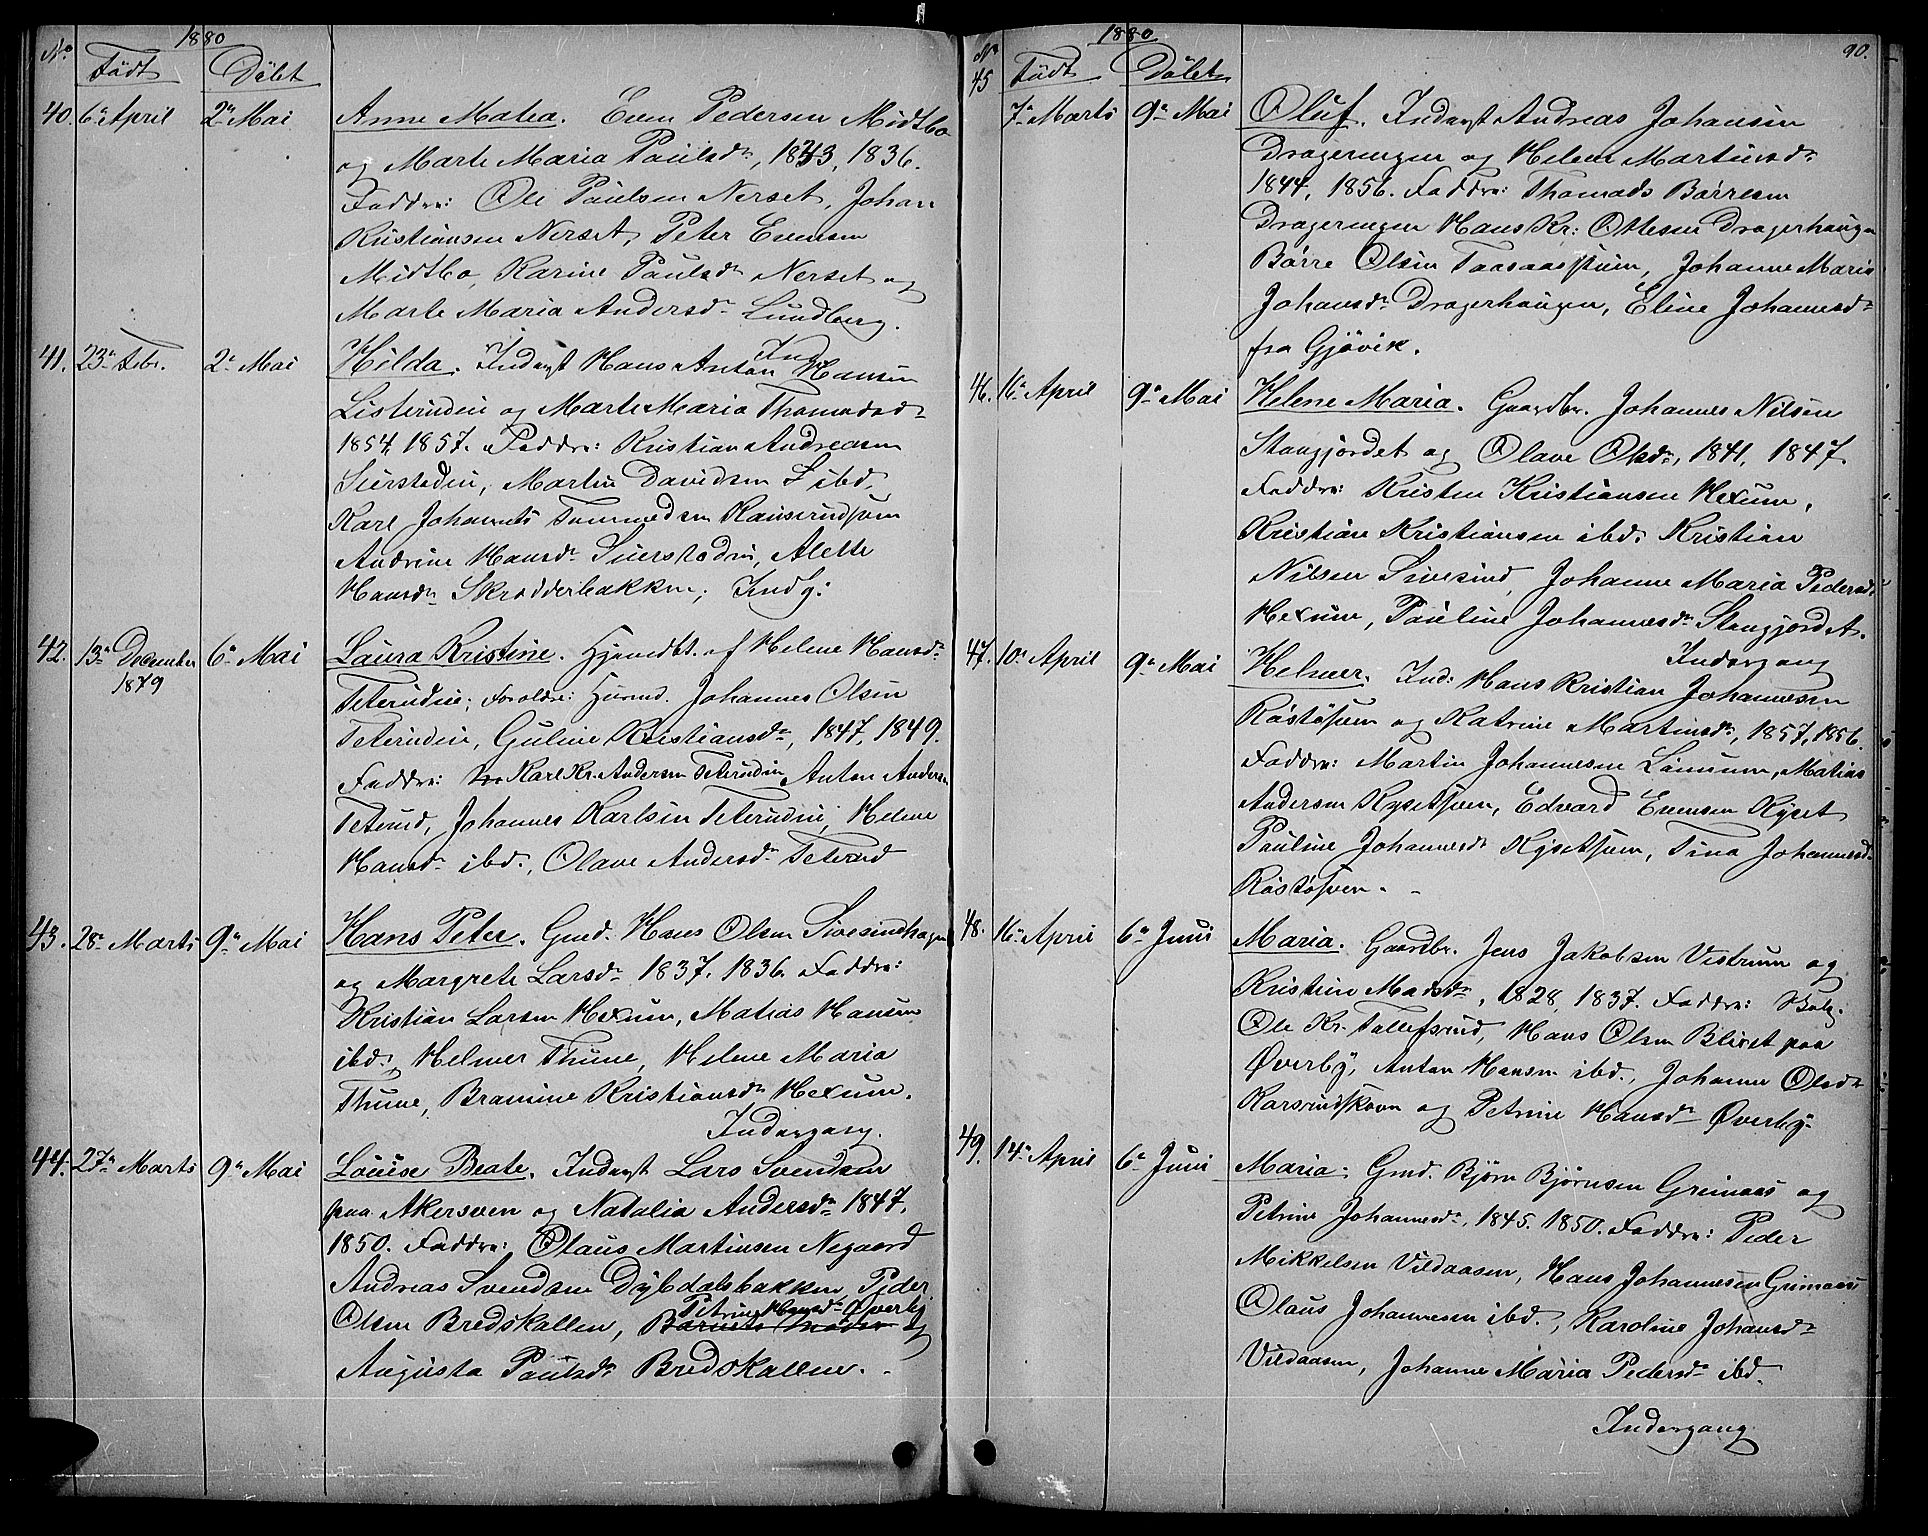 1880
No Født Døbt
40. 6te April 2en Mai Anne Matea. Even Pedersen Midtbo
og Marte Maria Paulsdr, 1833, 1836.
Faddre: Ole Paulsen Nerset, Johan
Kristiansen Nerset, Peter Evensen
Midtbo, Karine Paulsdr Nerset og
Marte Maria Andersdr Lundberg.
41. 23de Febr. 2en Mai Hilda. Inderst Hans Anton Hansen
Listeruden og Marte Maria Thomasdr
1854, 1857. Faddre: Kristian Andreasen
Sierstadeie, Martin Davidsen ibd,
Karl Johannes
Andrine Hansdr Sierstadeie, Alette
Hansdr Skrædderbakken; Indg:
42. 13de December 6te Mai Laura Kristine. Hjemdbt. af Helene Hansdr
1879 Teterudeie; Foreldre: Husmd. Johannes Olsen
Teterudeie, Guline Kristiansdr, 1847, 1849.
Faddre: Karl Kr. Andersen Teterudeie, Anton Andersen
Teterud, Johannes Karlsen Teterudeie, Helene
Hansdr ibd., Olave Andersdr Teterud
43. 28de Marts 9de Mai Hans Peter. Gmd. Hans Olsen Sivesindhagen
og Margrete Larsdr 1837, 1836. Faddre:
Kristian Larsen Hexum, Matias Hansen
ibd, Helmer Thune, Helene Maria
Thune, Bramine Kristiansdr Hexum.
Indergang.
44. 27de Marts 9de Mai Louise Beate. Inderst Lars Svendsen
paa Akersveen og Natalia Andersdr 1847,
1850. Faddre: Olaus Martinsen Negaard
Andreas Svendsen Dybdalsbakken, Peder
Olsen Bredskallen, Barnets Moder Petrine Hansdr Øverby og
Augusta Paulsdr Bredskallen.
1880 90.
No Født Døbt
45 7de Marts 9de Mai Oluf. Inderst Andreas Johansen
Drageringen og Helene Martinsdr
1844, 1856. Faddre: Thomads Børresen
Drageringen Hans Kr: Ottesen Dragerhaugen
Børre Olsen Taasaasstuen, Johanne Maria
Johansdr Dragerhaugen, Eline Johannesdr
fra Gjøvik.
46. 16de April 9de Mai Helene Maria. Gaardbr. Johannes Nilsen
Stangjordet og Olave Olsdr, 1841, 1847.
Faddre: Kristen Kristiansen Hexum,
Kristian Kristiansen ibd. Kristian
Nilsen Sivesind, Johanne Maria Pedersdr
Hexum, Pauline Johannesdr Stangjordet.
Indergang
47. 10de April 9de Mai Helmer. Ind: Hans Kristian Johannesen
Røstøsven og Katrine Martinsdr, 1857, 1856.
Faddre: Martin Johannesen Linnum, Matias
Andersen Rysetsven, Edvard Evensen Ryset
Pauline Johannesdr Rysetsven, Tina Johannesdr
Røstøsven.
48. 16de April 6te Juni Maria. Gaardbr. Jens Jakobsen Vestrum og
Kristine Madsdr, 1828, 1837. Faddre:
Ole Kr. Tollefsrud, Hans Olsen Bleiet paa
Øverby, Anton Hansen ibd., Johanne Olsdr
Karsrudskoven og Petrine Hansdr Øverby.
49. 14de April 6te Juni Maria. Gmd. Bjørn Bjørnsen Greinaas og
Petrine Johannesdr, 1845. 1850. Faddre: Peder
Mikkelsen Vildaasen, Hans Johannesen Grinaas
Olaus Johannesen ibd., Karoline Johansdr
Vildaasen, Johanne Maria Pedersdr ibd.
Indergang